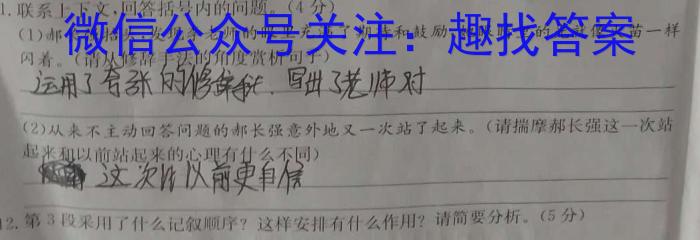 1.联系上下文,回答括号内的问题。(4分)
微信公众号关注:趣找答案
(1)郝 老师的眼里充满了期待和鼓励 苗一样
闪着。(请从修辞手法的角度赏析句子)
运用了夸张的修辞手法,写出了老师对
(2)从来不主动回答问题的郝长强意外地又一次站了起来。(请揣摩郝长强这一次站
起来和以前站起来的心理有什么不同)
这次比以前更自信
12.第3段采用了什么记叙顺序?这样安排有什么作用?请简要分析。(5分)